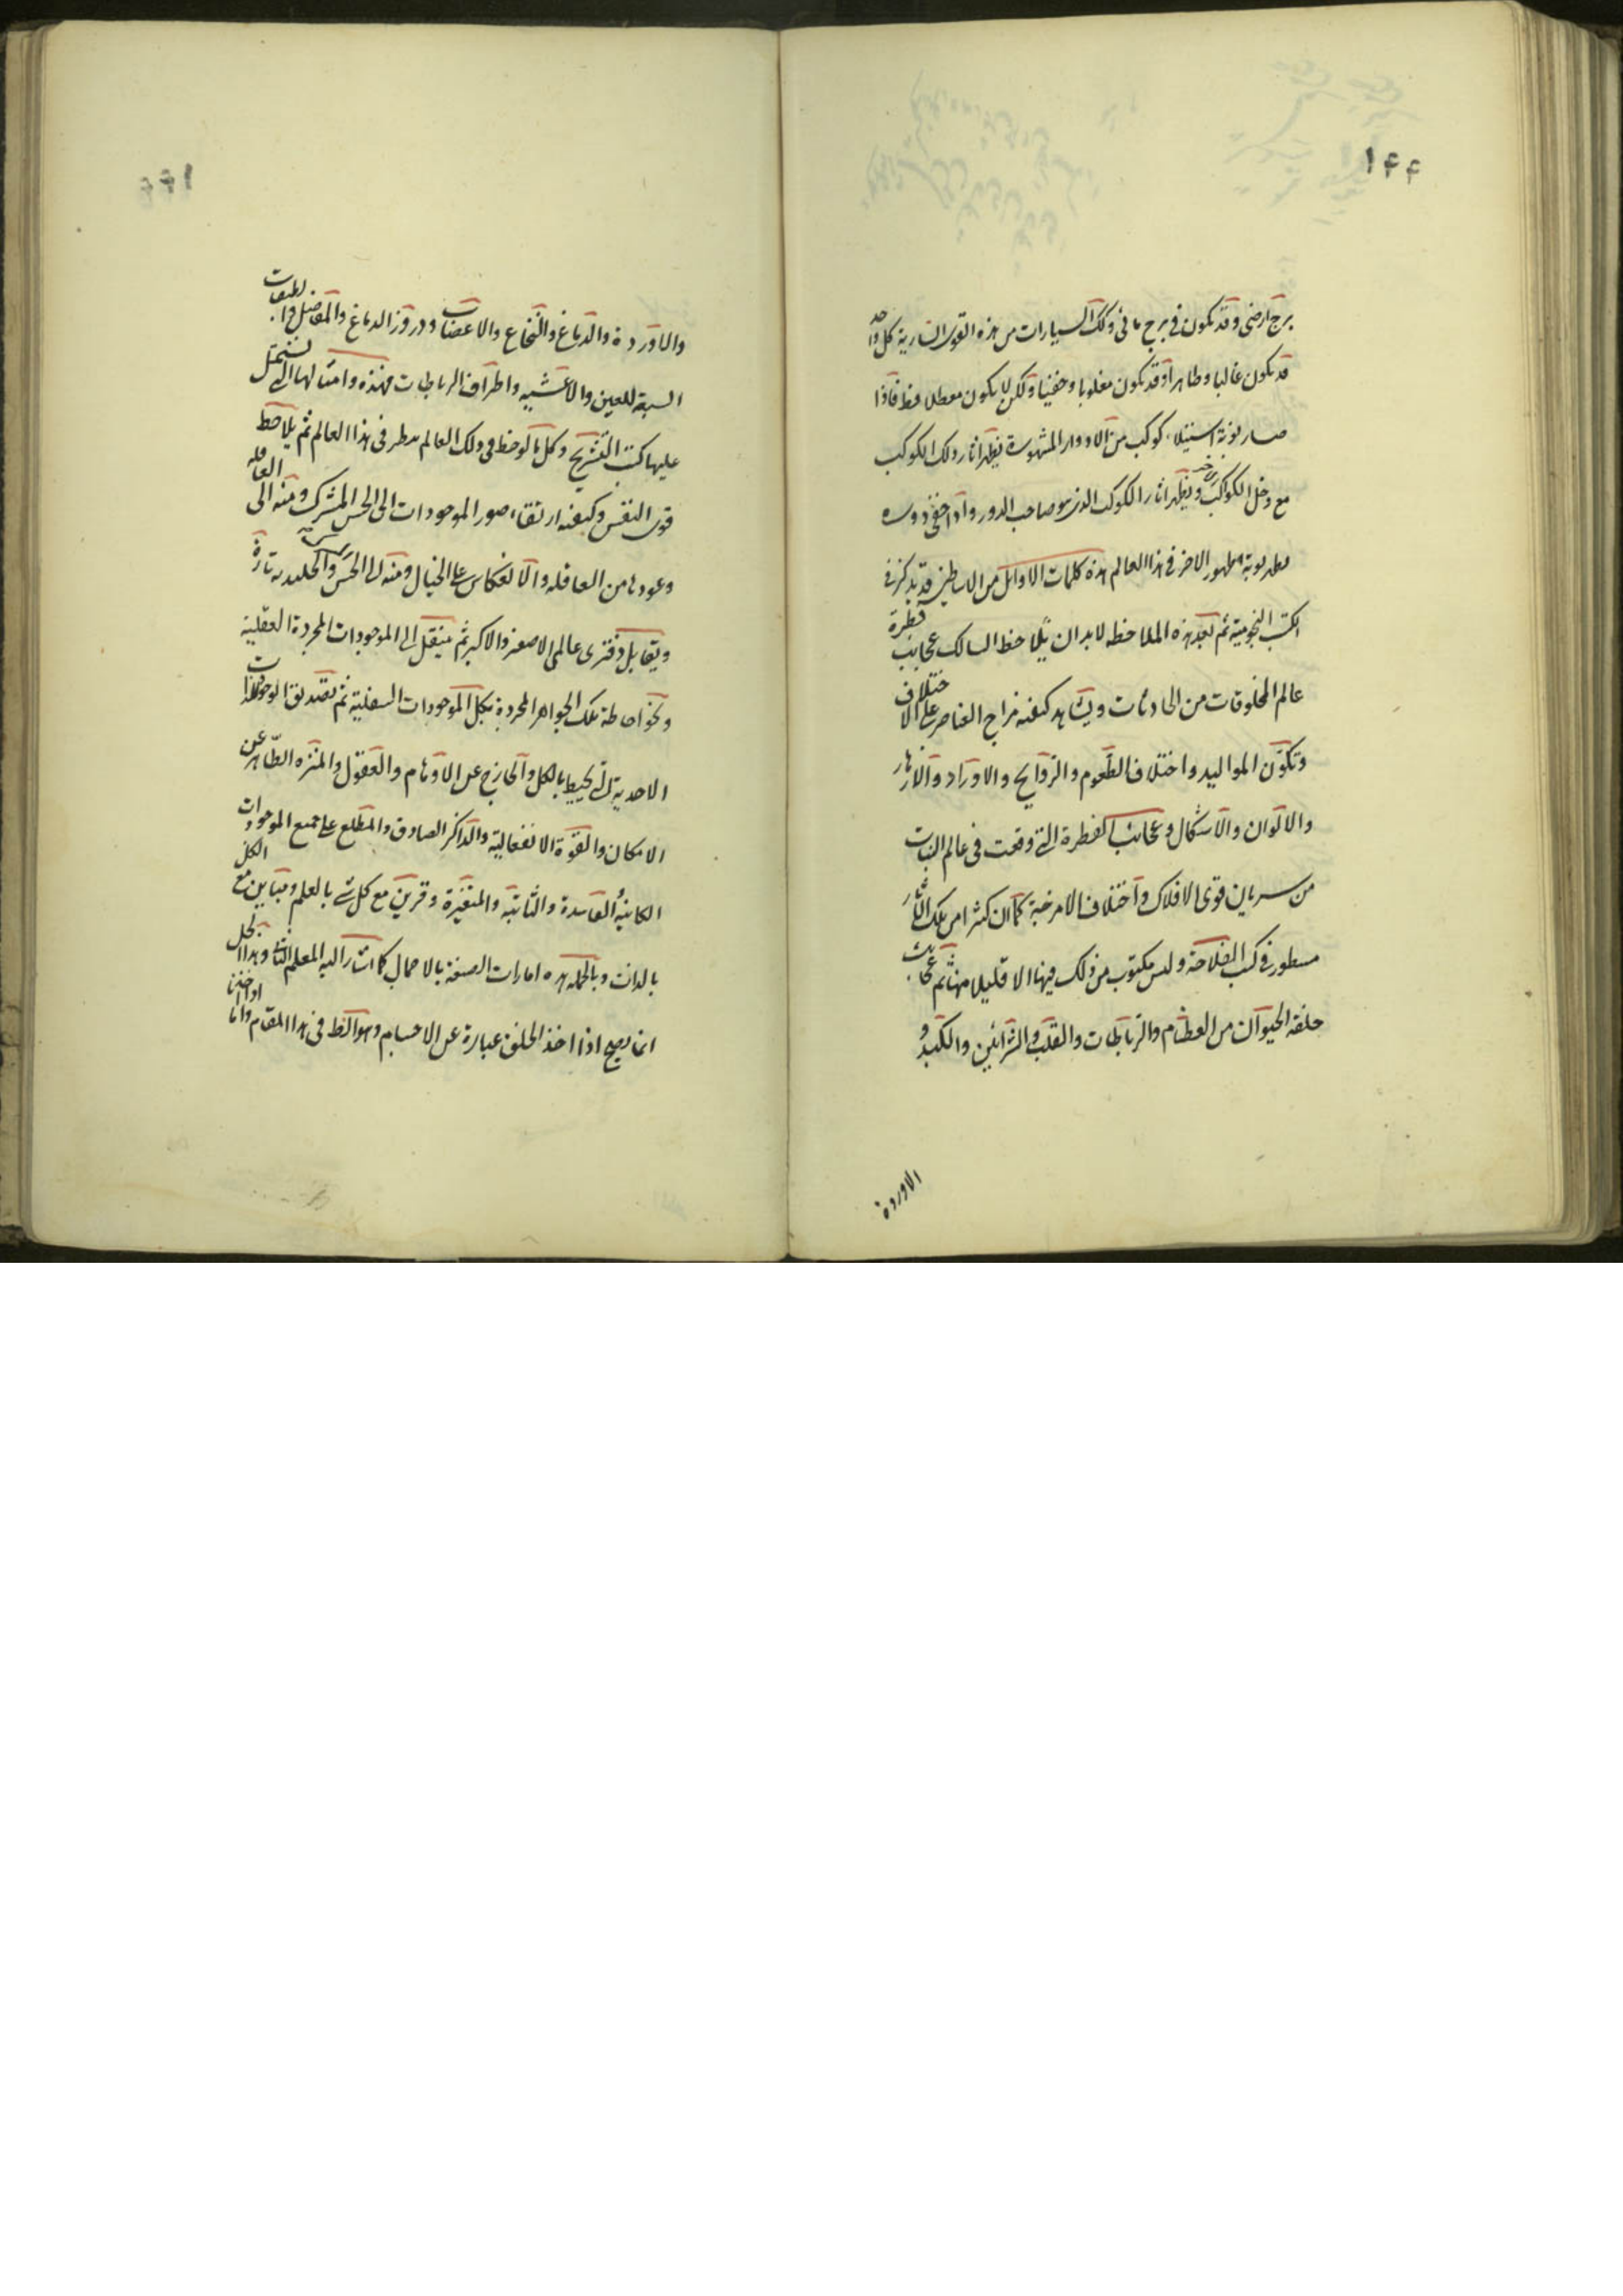 ۱۴۴
برج ارضی وقد تکون فی برج مائی وتلک السیارات من هذه القوی الساریة کل واحد
قد تکون غالبا وظاهرا وقد تکون مغلوبا وخفیا ولکن لا یکون معطلا قط فاذا
صار نوبة استیلاء کوکب من الادوار المشهورة یظهر اثار ذلک الکوکب
مع دخل الکواکب ویظهر اثار الکوکب الذی هو صاحب الدور واذا خفی دوره
یظهر نوبة ظهور الاخر فی هذا العالم هذه کلمات الاوائل من الاساطین قد یذکر فی
الکتب النجومیة ثم بعد هذه الملاحظه لابد ان یلاحظ السالک عجایب فطرة
عالم المخلوقات من الحادثات ویشاهد کیفیه مزاج العناصر علی الاختلاف
وتکون الموالید واختلاف الطعوم والروایح والاوراد والازهار
والالوان والاشکال وعجایب الفطرة التی وقعت فی عالم النبات
من سریان قوی الافلاک واختلاف الامزجة کما ان کثیرا من تلک الاثار
مسطور فی کتب الفلاحة ولیس مکتوب من ذلک فیها الا قلیلا منها ثم عجایب
خلقة الحیوان من العظام والرباطات والقلب والشرائین والکبد و
الاوردة
والاوردة والدماغ والنخاع والاعصاب ودروز الدماغ والمفاصل والطبقات
السبعة للعین والاغشیه واطراف الرباطات فهذه وامثالها التی یشتمل
علیها کتب التشریح وکل ما لوحظ فی ذلک العالم ینظر فی هذا العالم ثم یلاحظ
قوی النفس وکیفیه ارتقاء صور الموجودات الی الحس المشترک ومنه الی العاقله
وعودها من العاقله والانعکاس علی الخیال ومنه الی الحس المشترک والجلیدیه تارة
ویقابل دفتری عالمی الاصغر والاکبر ثم ینتقل الی الموجودات المجردة العقلیة
ونحو احاطة تلک الجواهر المجردة بکل الموجودات السفلیة ثم تصدیق الوجود الذات
الاحدیة التی یحیط بالکل والخارج عن الاوهام والعقول والمنزه الطاهر عن
الامکان والقوة الانفعالیة والذاکر الصادق والمطلع علی جمیع الموجودات
الکاینة الفاسدة والثابتة والمتغیرة وقرین مع کل شی بالعلم ومباین مع الکل
بالذات وبالجمله هذه امارات الصنعة بالاجمال کما اشار الیه المعلم الثانی وهذا الحل
انما یصح اذا اخذ الخلق عبارة عن الاجسام وهو الظ فی هذا المقام واما اذا اخذنا